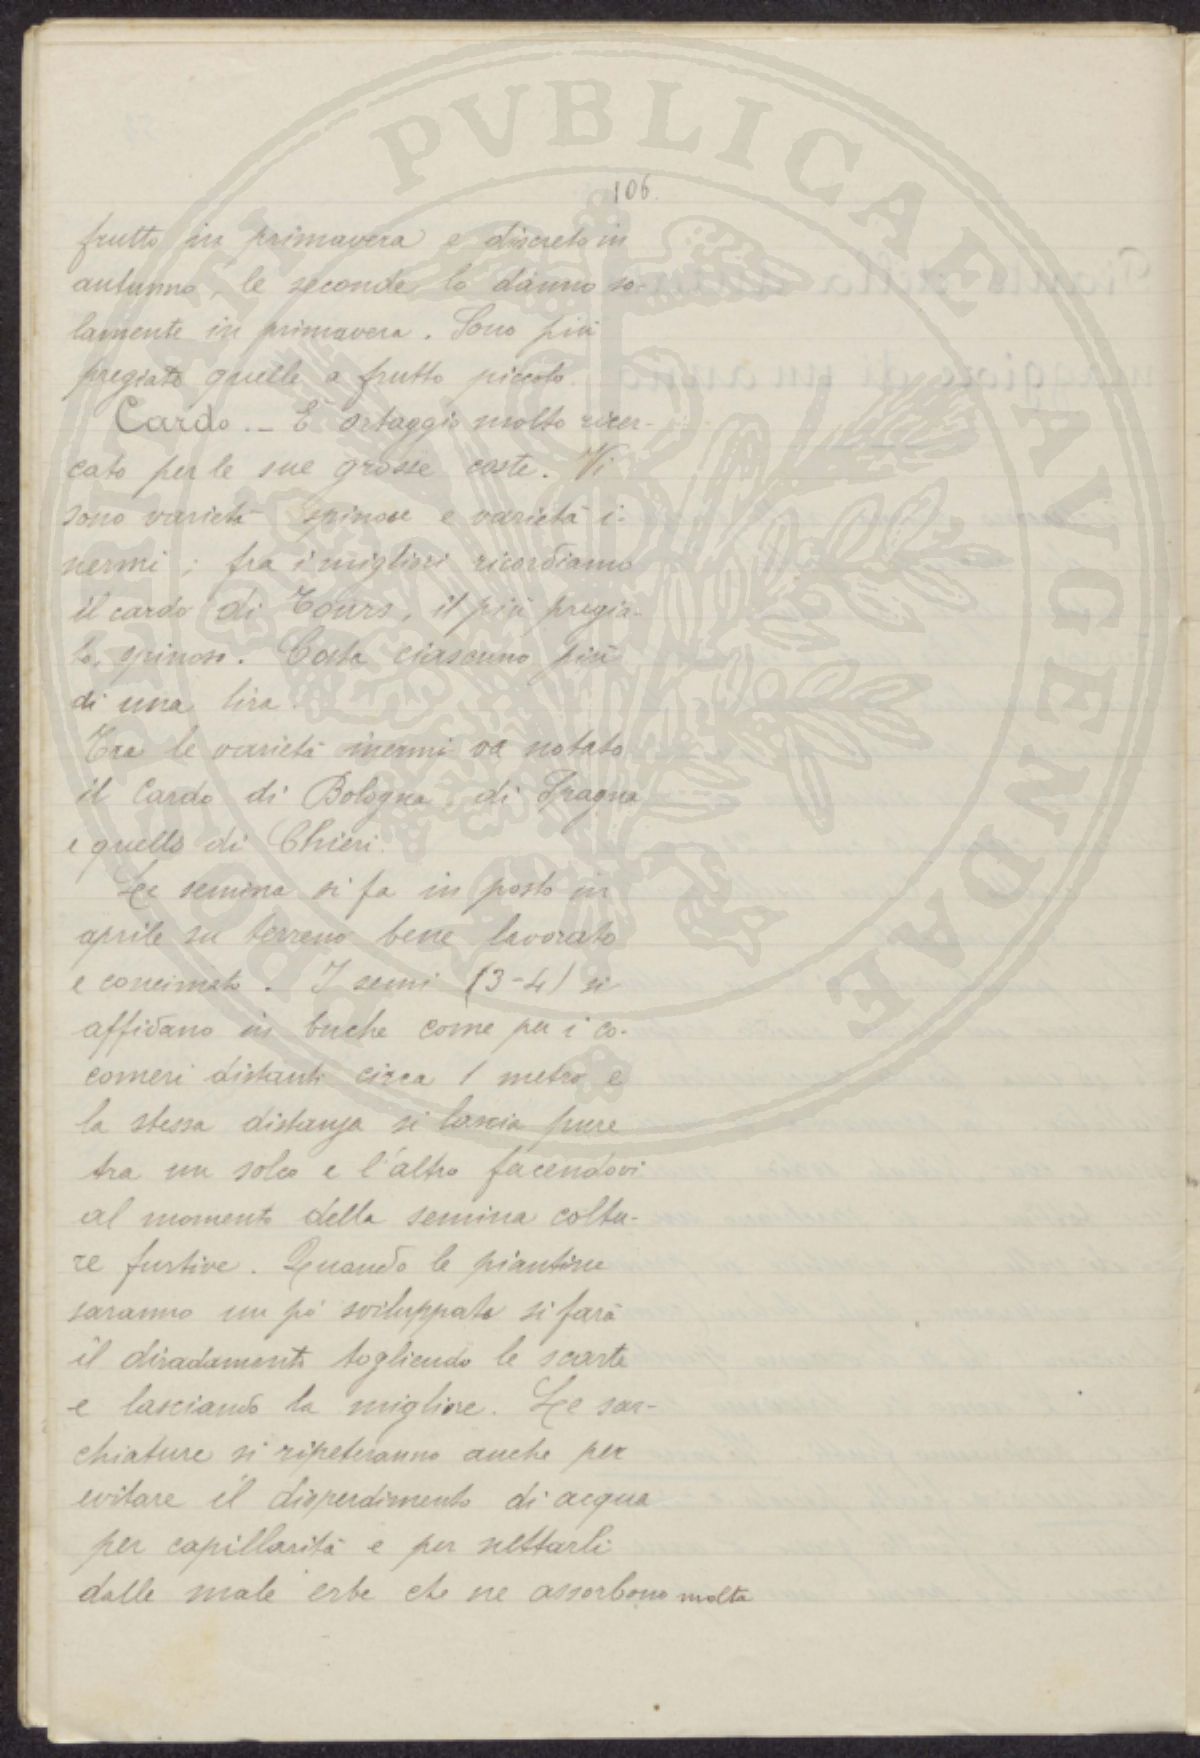 106.
frutto in primavera e discreto in
autunno, le seconde lo dànno so-
lamente in primavera. Sono più
pregiate quelle a frutto piccolo.
Cardo. - E' ortaggio molto ricer-
cato per le sue grosse coste. Vi
sono varietà spinose e varietà i-
nermi; fra i migliori ricordiamo
il cardo di Tours, il più pregia-
to, spinoso. Costa ciascuno più
di una lira.
Tra le varietà inermi va notato
il Cardo di Bologna, di Spagna
e quello di Chieri.
La semina si fa in posto in
aprile su terreno bene lavorato
e concimato. I semi (3-4) si
affidano in buche come per i co-
comeri distanti circa 1 metro e
la stessa distanza si lascia pure
tra un solco e l'altro facendovi
al momento della semina coltu-
re furtive. Quando le piantine
saranno un pò sviluppate si farà
il diradamento togliendo le scarte
e lasciando la migliore. Le sar-
chiature si ripeteranno anche per
evitare il disperdimento di acqua
per capillarità e per nettarli
dalle male erbe che ne assorbono molta
PVBLICAE AVGENDAE